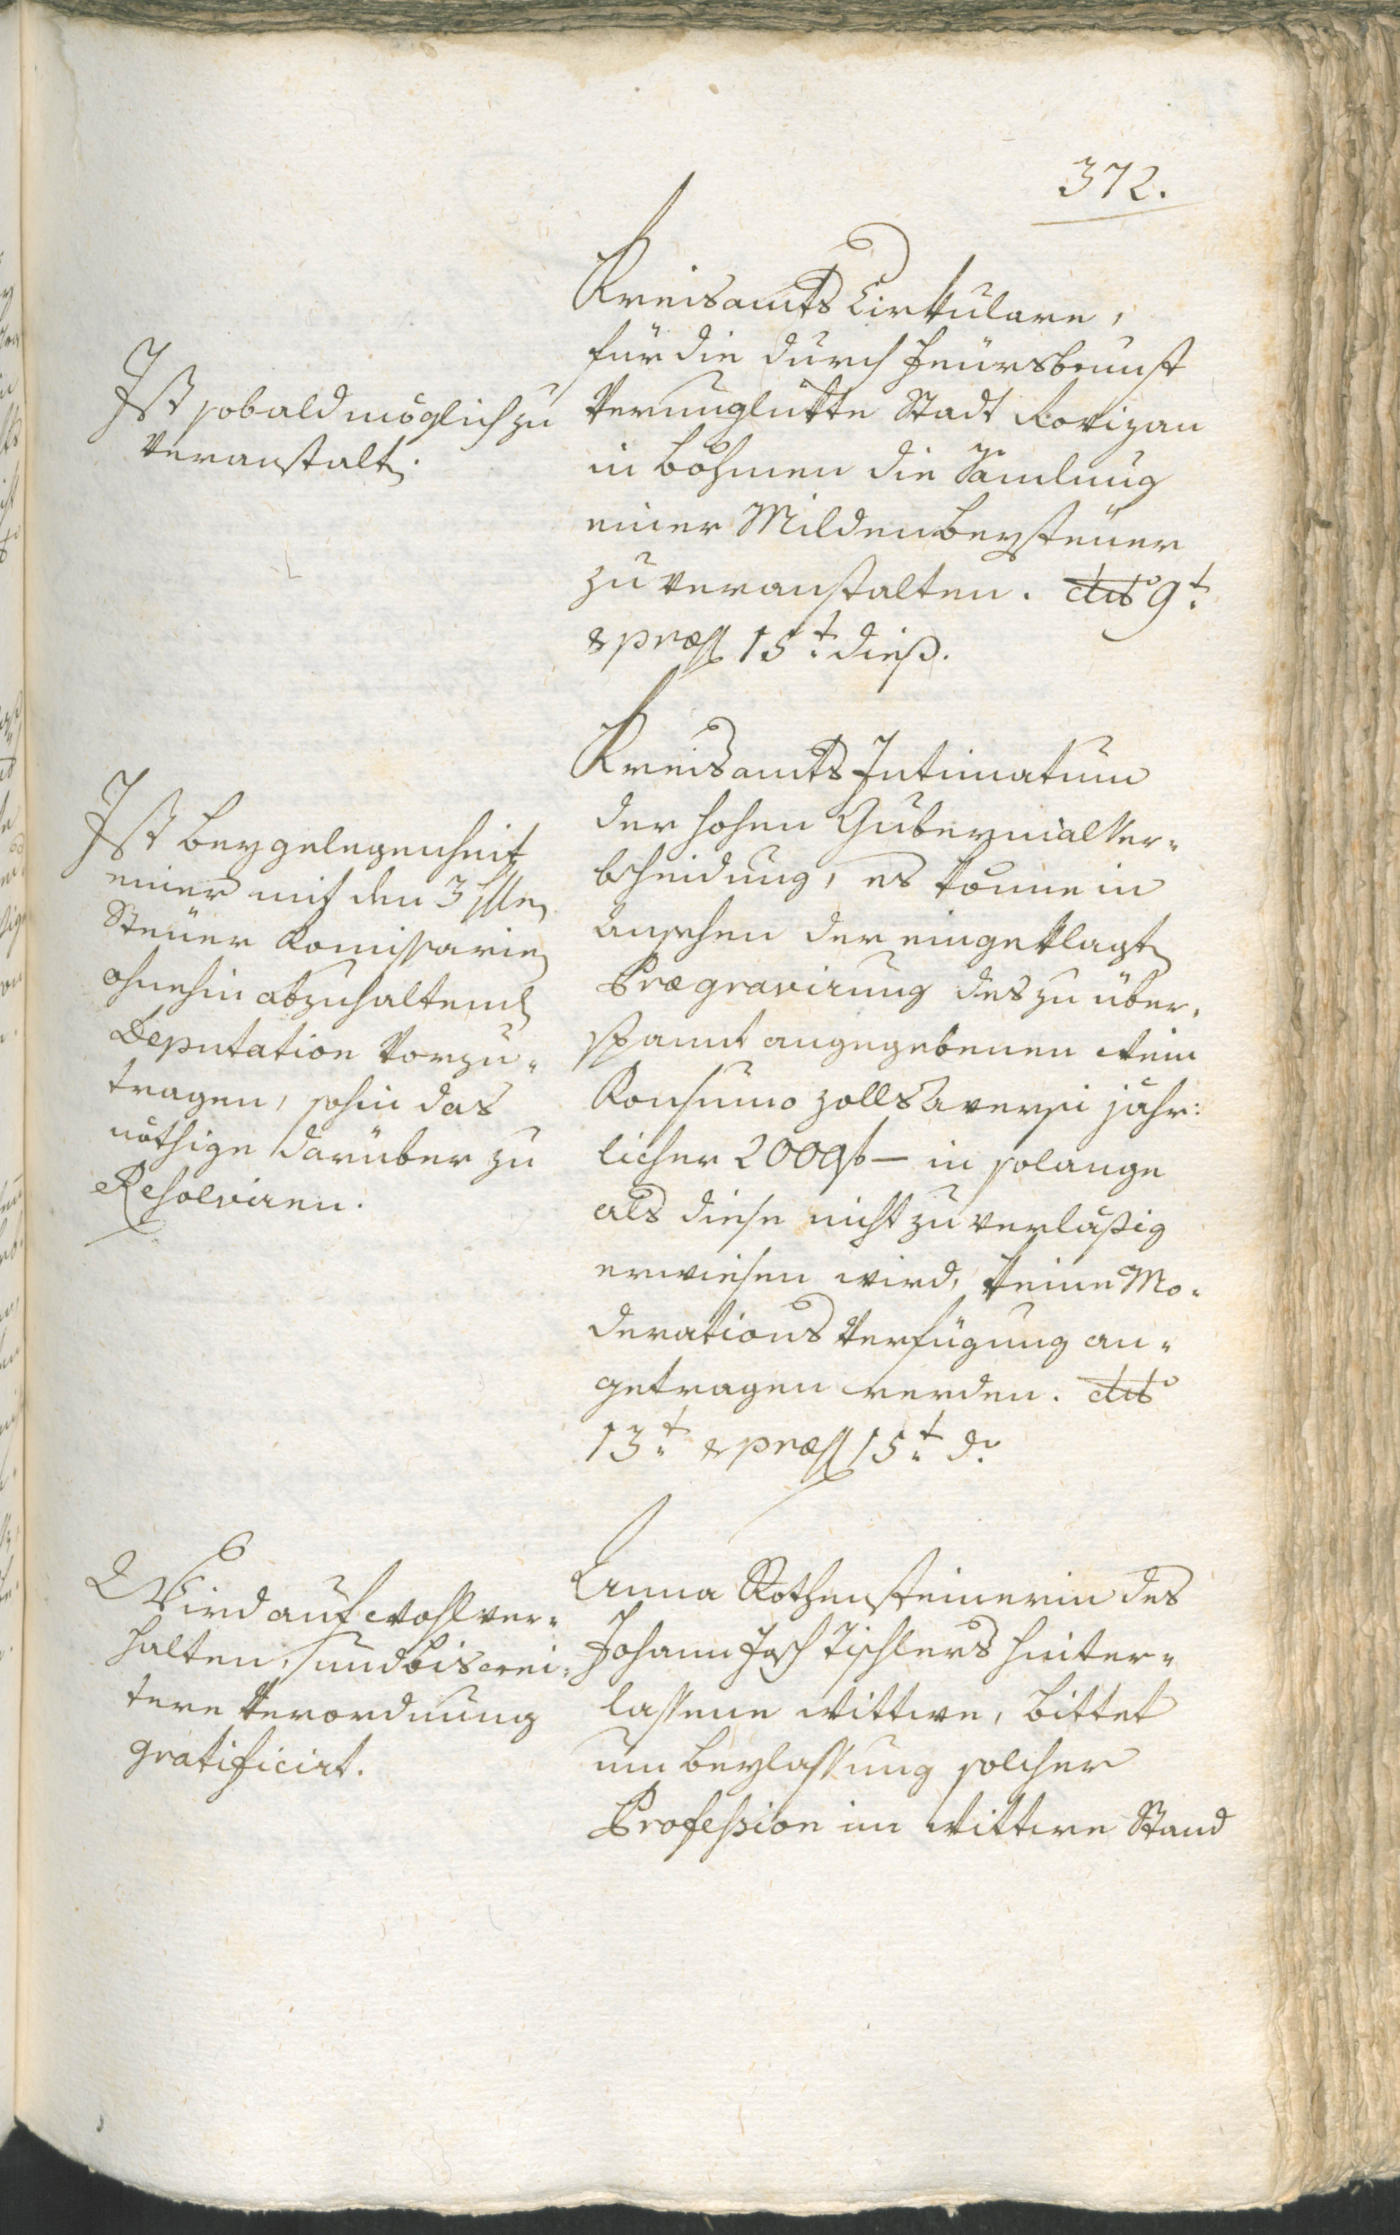 372.
Kreisamts Cirkulare,
für die durch Feürsbrunst
Verunglükte Stadt Rokizan
in Böhmen die Samlung
einer Milden beysteüer
zu veranstalten. dtõ 9t
& præs 15t dieß.
Ist sobald möglich zu
veranstalten.
Kreisamts Intimatum
der hohen Gubernial Ver-
bscheidung, es könne in
ansehen der eingeklagten
Prægravirung des zu über-
spannt angegebenen Wein
Konsumo zolls Aversi jähr:
licher 200 f – in solange
als diese nicht zu verläßig
erwiesen wird, keine Mo-
derations Verfügung an-
getragen werden. dtõ
13t & præs 15t do
Ist bey gelegenheit
einer mit den 3
Steüer Komissarien
ohnehin abzuhaltenden
Deputation Vorzu-
tragen, sohin das
nöthige darüber zu
Resolviren.
Anna Rothensteinerin des
Johann Jos. Tischlers hinter-
lassene Wittwe, bittet
um beylassung solcher
Profession im Wittwe Stand
Wird auf wohlver-
halten, und bis wei-
tere Verordnung
gratificirt.